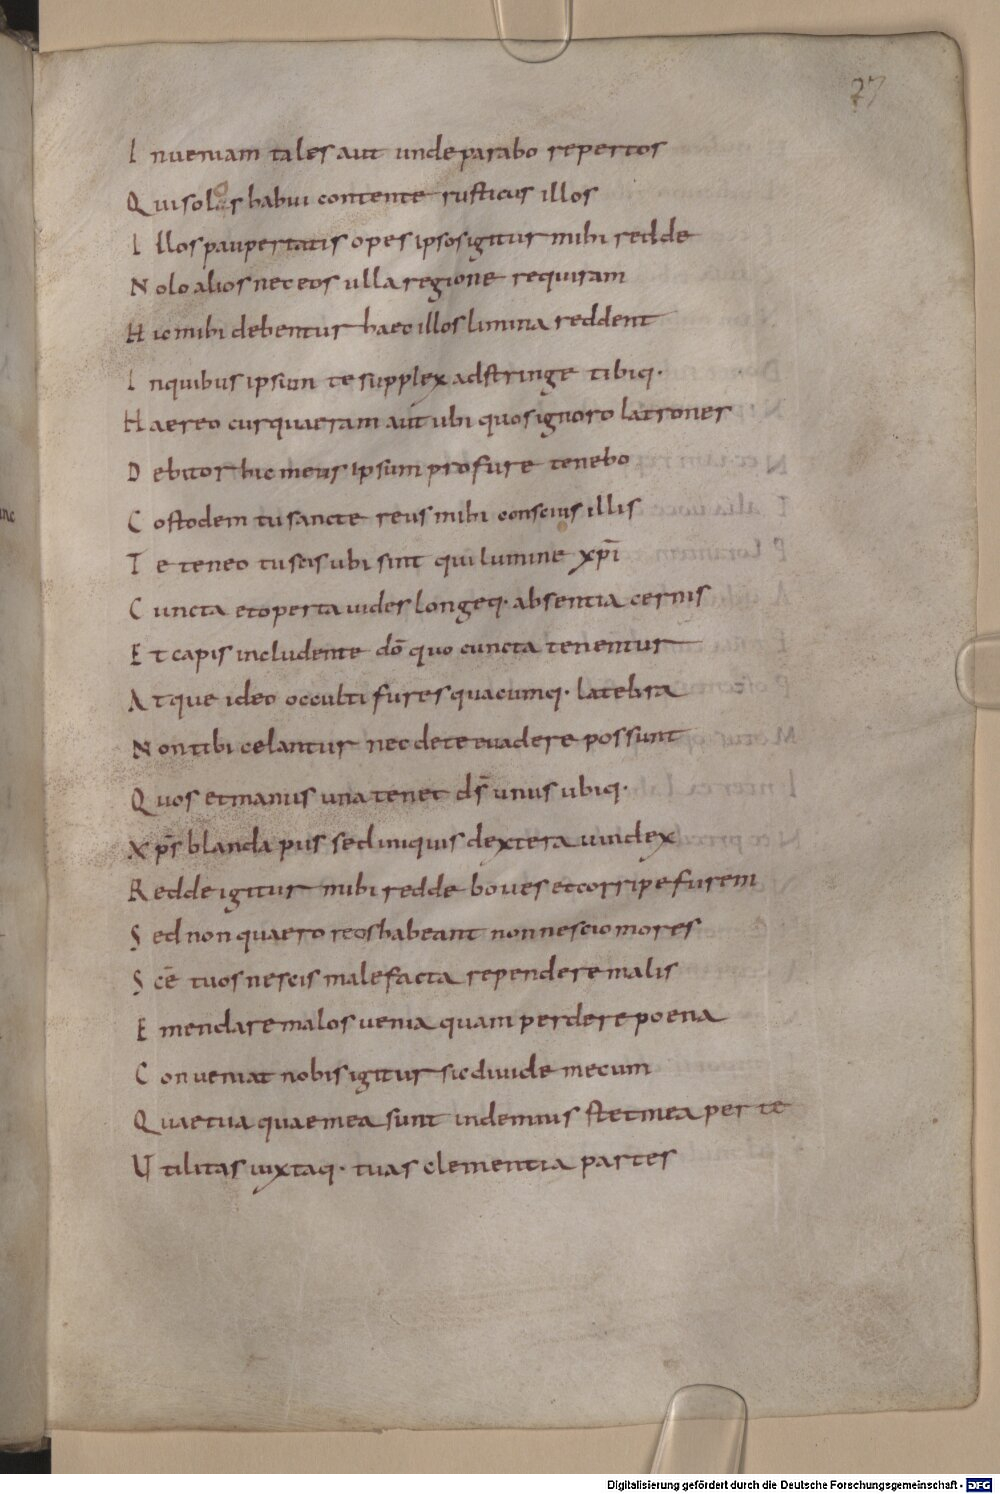 27
Inueniam tales aut unde parabo repertos
Qui solos habui contente rusticus illos
Illos paupertatis opes ipsos igitur mihi redde
Nolo alios nec eos ulla regione requiram
Hic mihi debentur haec illos limina reddent
Inquibus ipsum te supplex adstringe tibiq·
Haereo cur quaeram aut ubi quos ignoro latrones
Debitor hic meus ipsum pro fure tenebo
Costodem tu sancte reus mihi conscius illis
Te teneo tu scis ubi sint qui lumine xp̄i
Cuncta et operta uides longeq· absentia cernis
Et capis includente dō quo cuncta tenentur
Atque ideo occulti fures quacumq· latebra
Non tibi celantur nec de te euadere possunt
Quos et manus una tenet ds̄ unus ubiq·
Xp̄s blanda piis sed iniquis dextera uindex
Redde igitur mihi redde boues et corripe furem
Sed non quaero reos habeant non nescio mores
Scē tuos nescis male facta rependere malis
Emendare malos uenia quam perdere poena
Conueniat nobis igitur sic diuide mecum
Quae tua quae mea sunt indemnis stet mea per te
Utilitas iuxtaq· tuas clementia partes
Digitalisierung gefördert durch die Deutsche Forschungsgemeinschaft - DFG